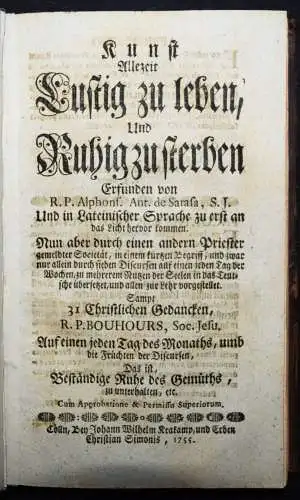 Kunst
Allezeit
Lustig zu leben,
Und
Ruhig zu sterben
Erfunden von
R. P. Alphons. Ant. de Sarasa, S. J.
Und in Lateinischer Sprache zu erst an
das Licht hervor kommen.
Nun aber durch einen andern Priester
gemeldter Societät, in einem kurtzen Begriff, und zwar
nur allein durch sieben Discursen auff einen jeden Tag der
Wochen, zu mehrerem Nutzen der Seelen in das Teut-
sche übersetzet, und allen zur Lehr vorgestellet.
Sampt
31 Christlichen Gedancken,
R. P. BOUHOURS, Soc. Jesu,
Auf einen jeden Tag des Monaths, umb
die Früchten der Discursen,
Das ist,
Beständige Ruhe des Gemüths,
zu unterhalten, etc.
Cum Approbatione & Permissu Superiorum.
Cölln, Bey Johann Wilhelm Krakamp, und Erben
Christian Simonis, 1755.